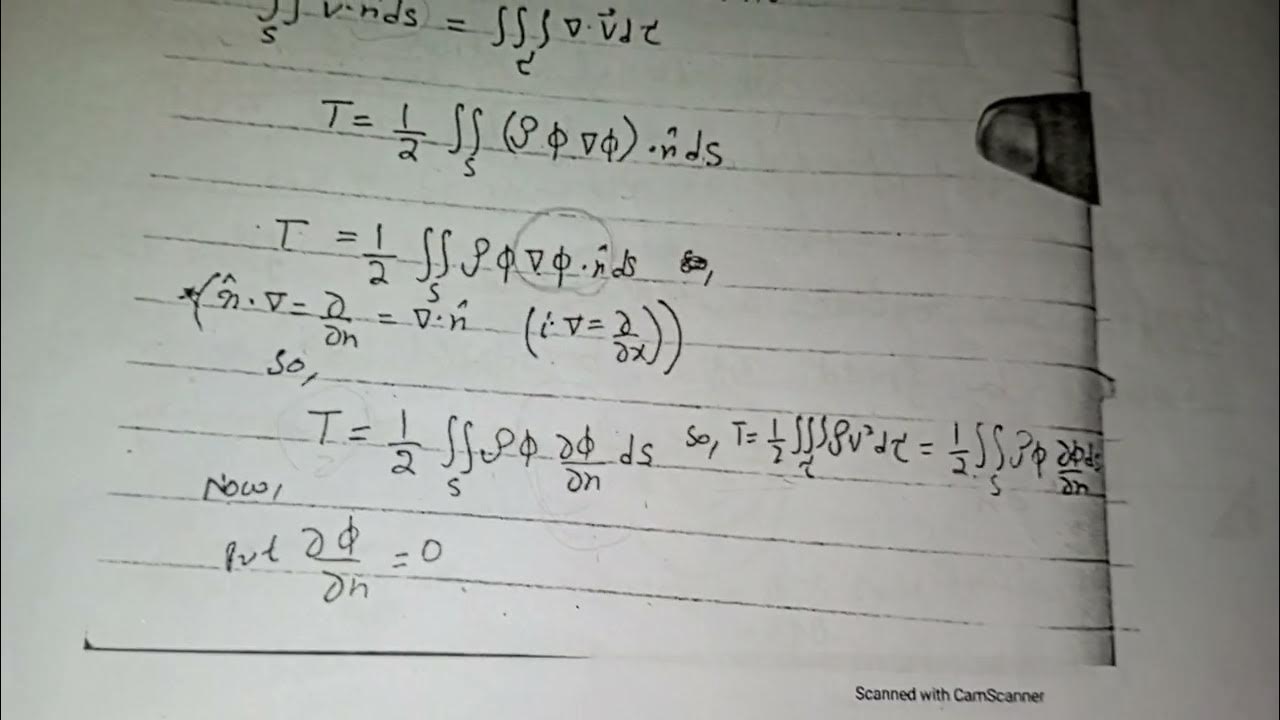 ∬_S V·n ds = ∭_τ ∇·V⃗ dτ
T = 1/2 ∬_S (ρ ϕ ∇ϕ)·n̂ ds
T = 1/2 ∬_S ρ ϕ ∇ϕ·n̂ ds ,
*(n̂·∇ = ∂/∂n = ∇·n̂ (i·∇ = ∂/∂x))
So,
T = 1/2 ∬_S ρϕ ∂ϕ/∂n ds So, T = 1/2 ∭_τ ρv² dτ = 1/2 ∬_S ρϕ ∂ϕ/∂n ds
Now,
Put ∂ϕ/∂n = 0
Scanned with CamScanner